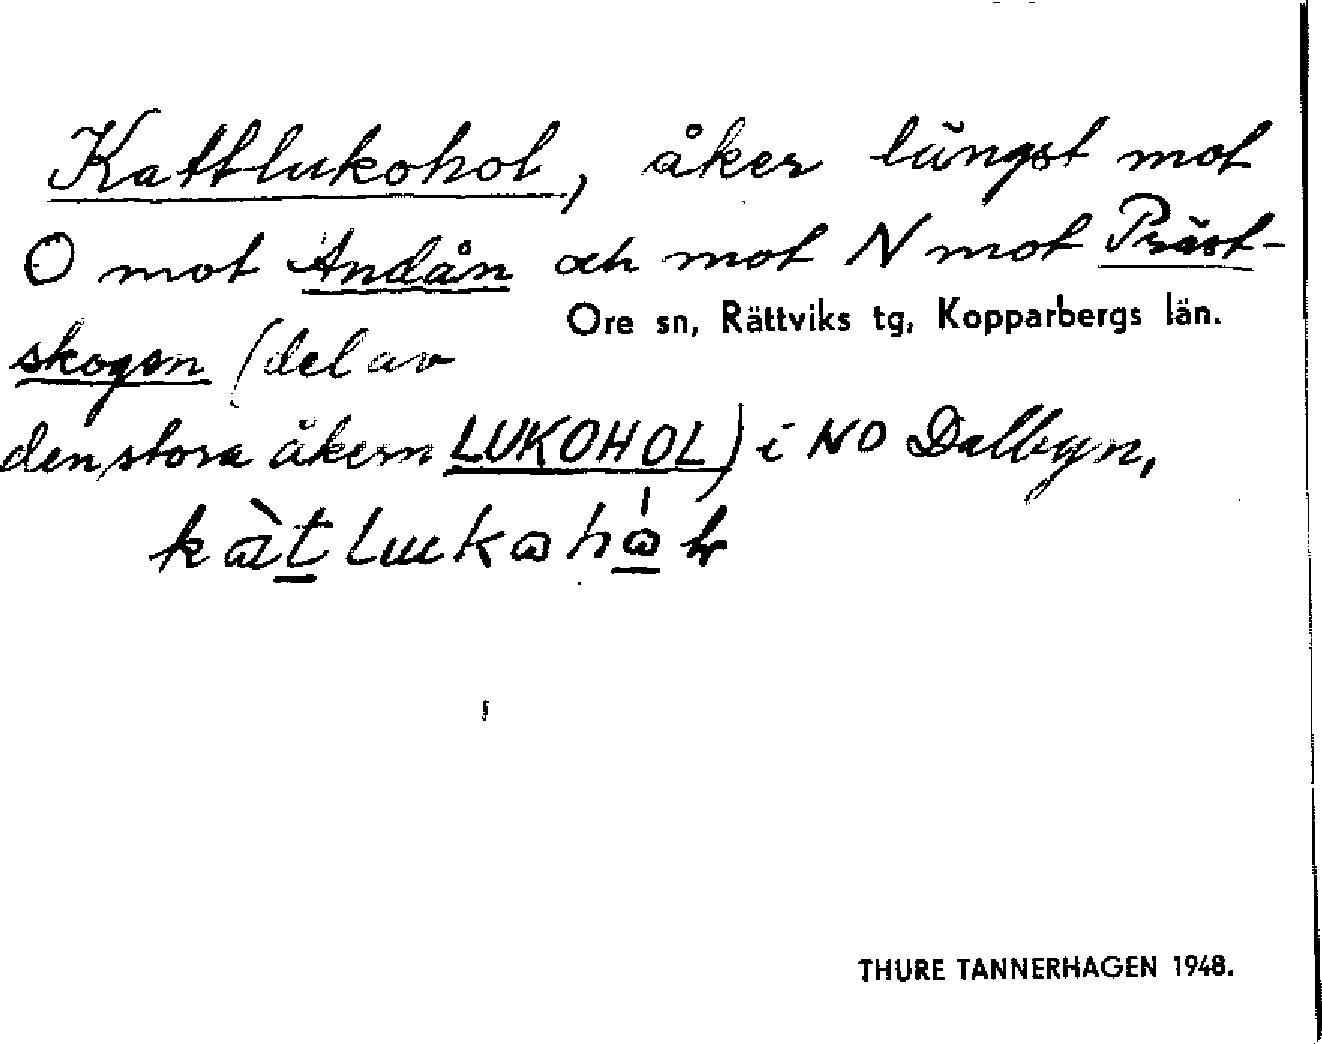 Kattlukohol, åker längst mot
O mot Andån och mot N mot Präst-
Ore sn, Rättviks tg, Kopparbergs län.
skogen (del av
den stora åkern LUKOHOL) i NO Dalbyn,
THURE TANNERHAGEN 1948.